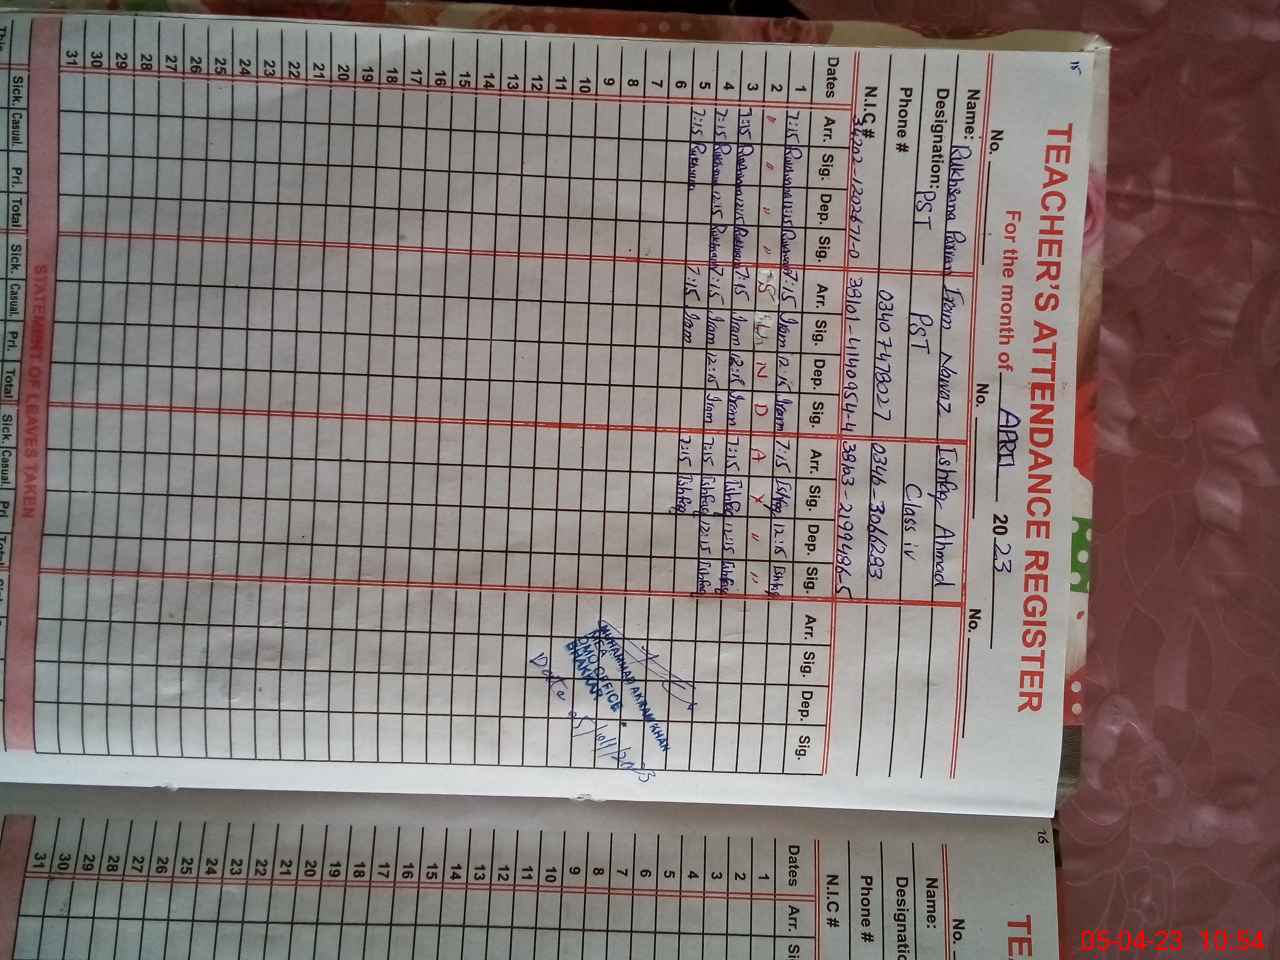 15
TEACHER'S ATTENDANCE REGISTER
For the month of APRIL 2023
No. No. No.
Name: Rukhsana Iram Nawaz Ishfaq Ahmad
Designation: PST PST Class iv
Phone # 0340 7478027 0346-3066293
N.I.C.# 34202-1202671-0 38101-4140954-4 38103-2199486-5
Dates Arr. Sig. Dep. Sig. Arr. Sig. Dep. Sig. Arr. Sig. Dep. Sig. Arr. Sig. Dep. Sig.
1 7:15 Rukhsana 12:15 Rukhsana 7:15 Iram 12:15 Iram 7:15 Ishfaq 12:15 Ishfaq
2 " " " " S U N D A Y " "
3 7:15 Rukhsana 12:15 Rukhsana 7:15 Iram 12:15 Iram 7:15 Ishfaq 12:15 Ishfaq
4 7:15 Rukhsana 12:15 Rukhsana 7:15 Iram 12:15 Iram 7:15 Ishfaq 12:15 Ishfaq
5 7:15 Rukhsana 7:15 Iram 7:15 Ishfaq
6
7
8
9
10
11
12
13
14
15
16
17
18
19
20
21
22
23
24
25
26
27
28
29
30
31
MUHAMMAD AKRAM KHAN
MEA
DMU OFFICE
BHAKKAR
Date 05/04/2023
STATEMENT OF LEAVES TAKEN
Sick. Casual. Pri. Total Sick. Casual. Pri. Total Sick. Casual. Pri. Total
This
16
TE
No.
Name:
Designatio
Phone #
N.I.C #
Dates Arr. Si
1
2
3
4
5
6
7
8
9
10
11
12
13
14
15
16
17
18
19
20
21
22
23
24
25
26
27
28
29
30
31
05-04-23 10:54